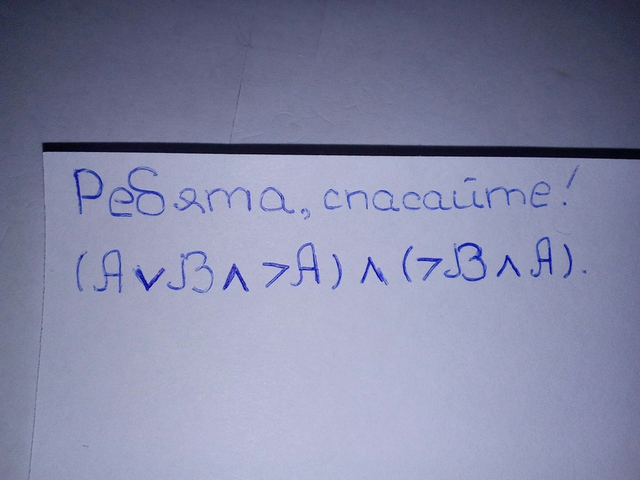 Ребята, спасайте!
(A∨B∧>A)∧(>B∧A).